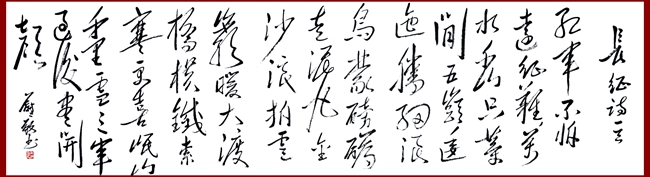 長征詩一首
紅軍不怕
遠征難萬
水千山只等
閒五嶺逶
迤騰細浪
烏蒙磅礴
走泥丸金
沙浪拍雲
崖暖大渡
橋橫鐵索
寒更喜岷山
千里雪三軍
過後盡開
顏